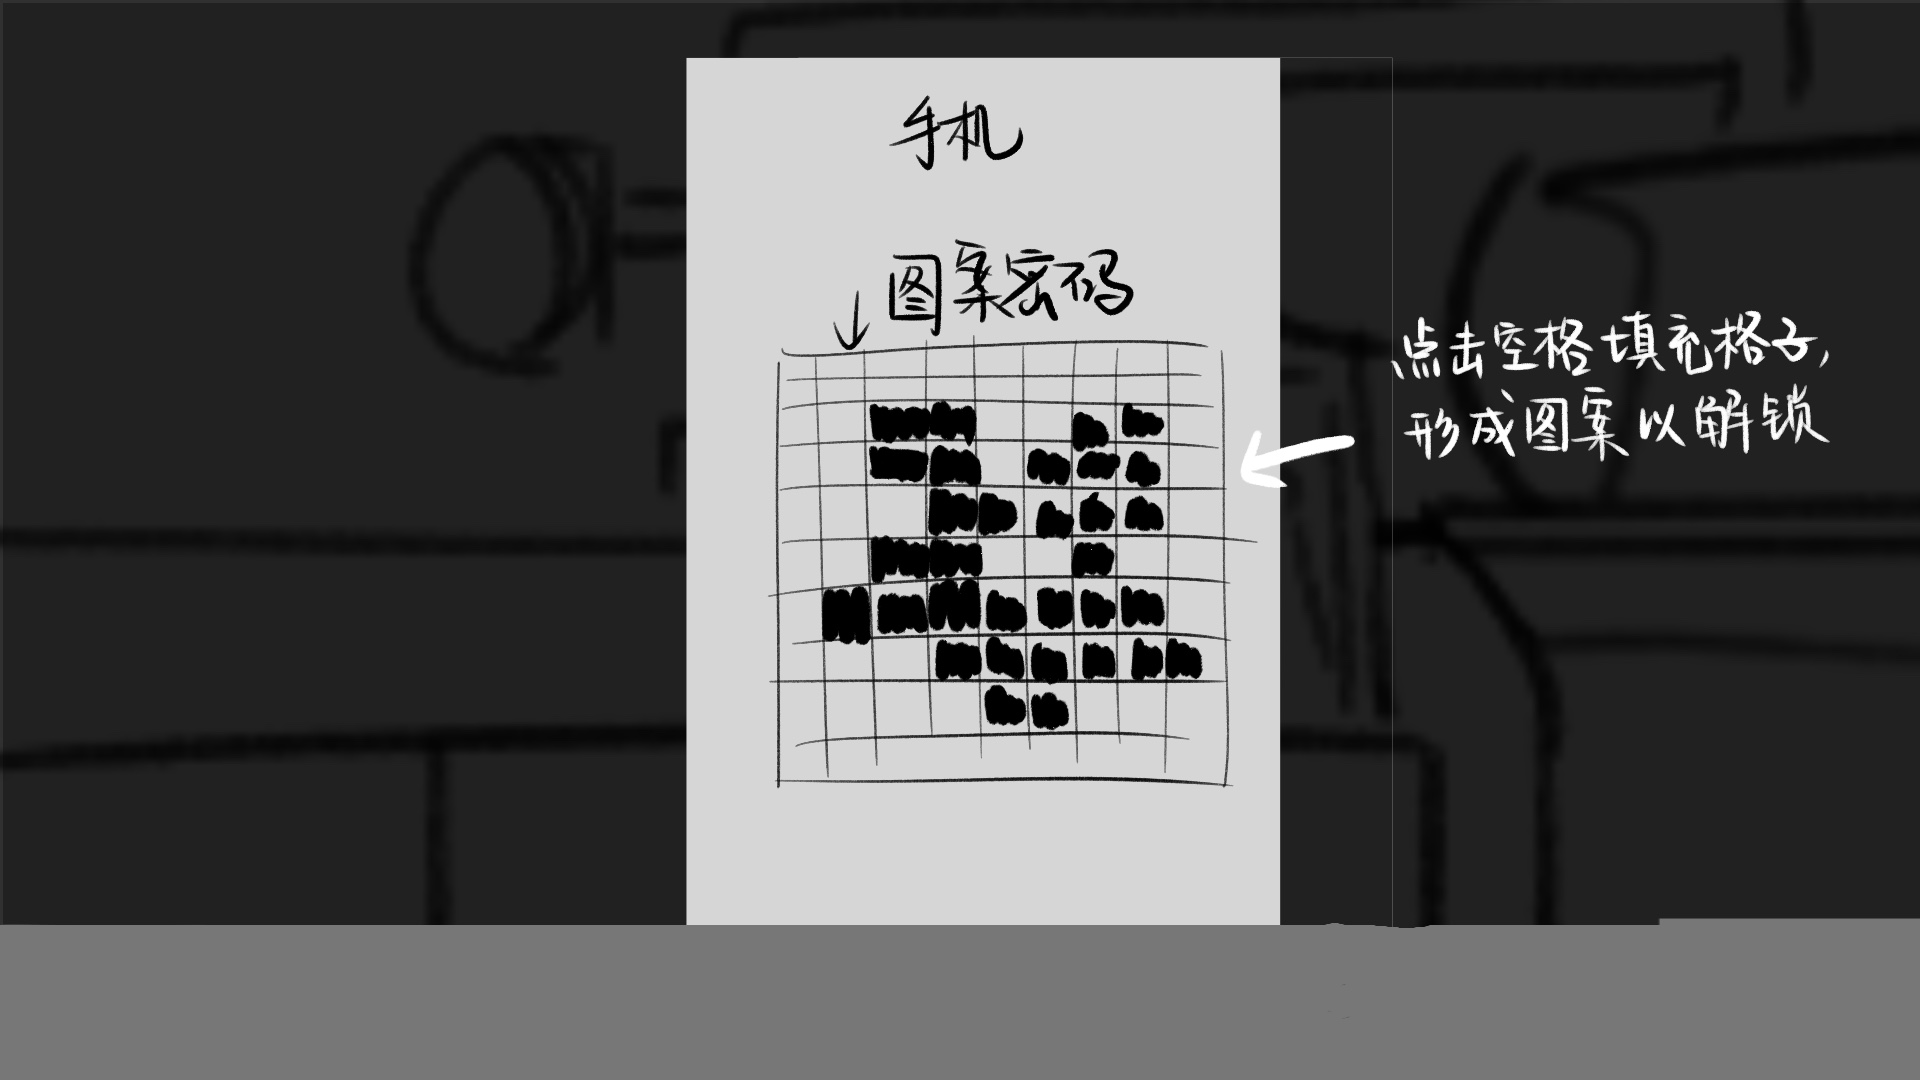 手机
图案密码
点击空格填充格子,
形成图案以解锁